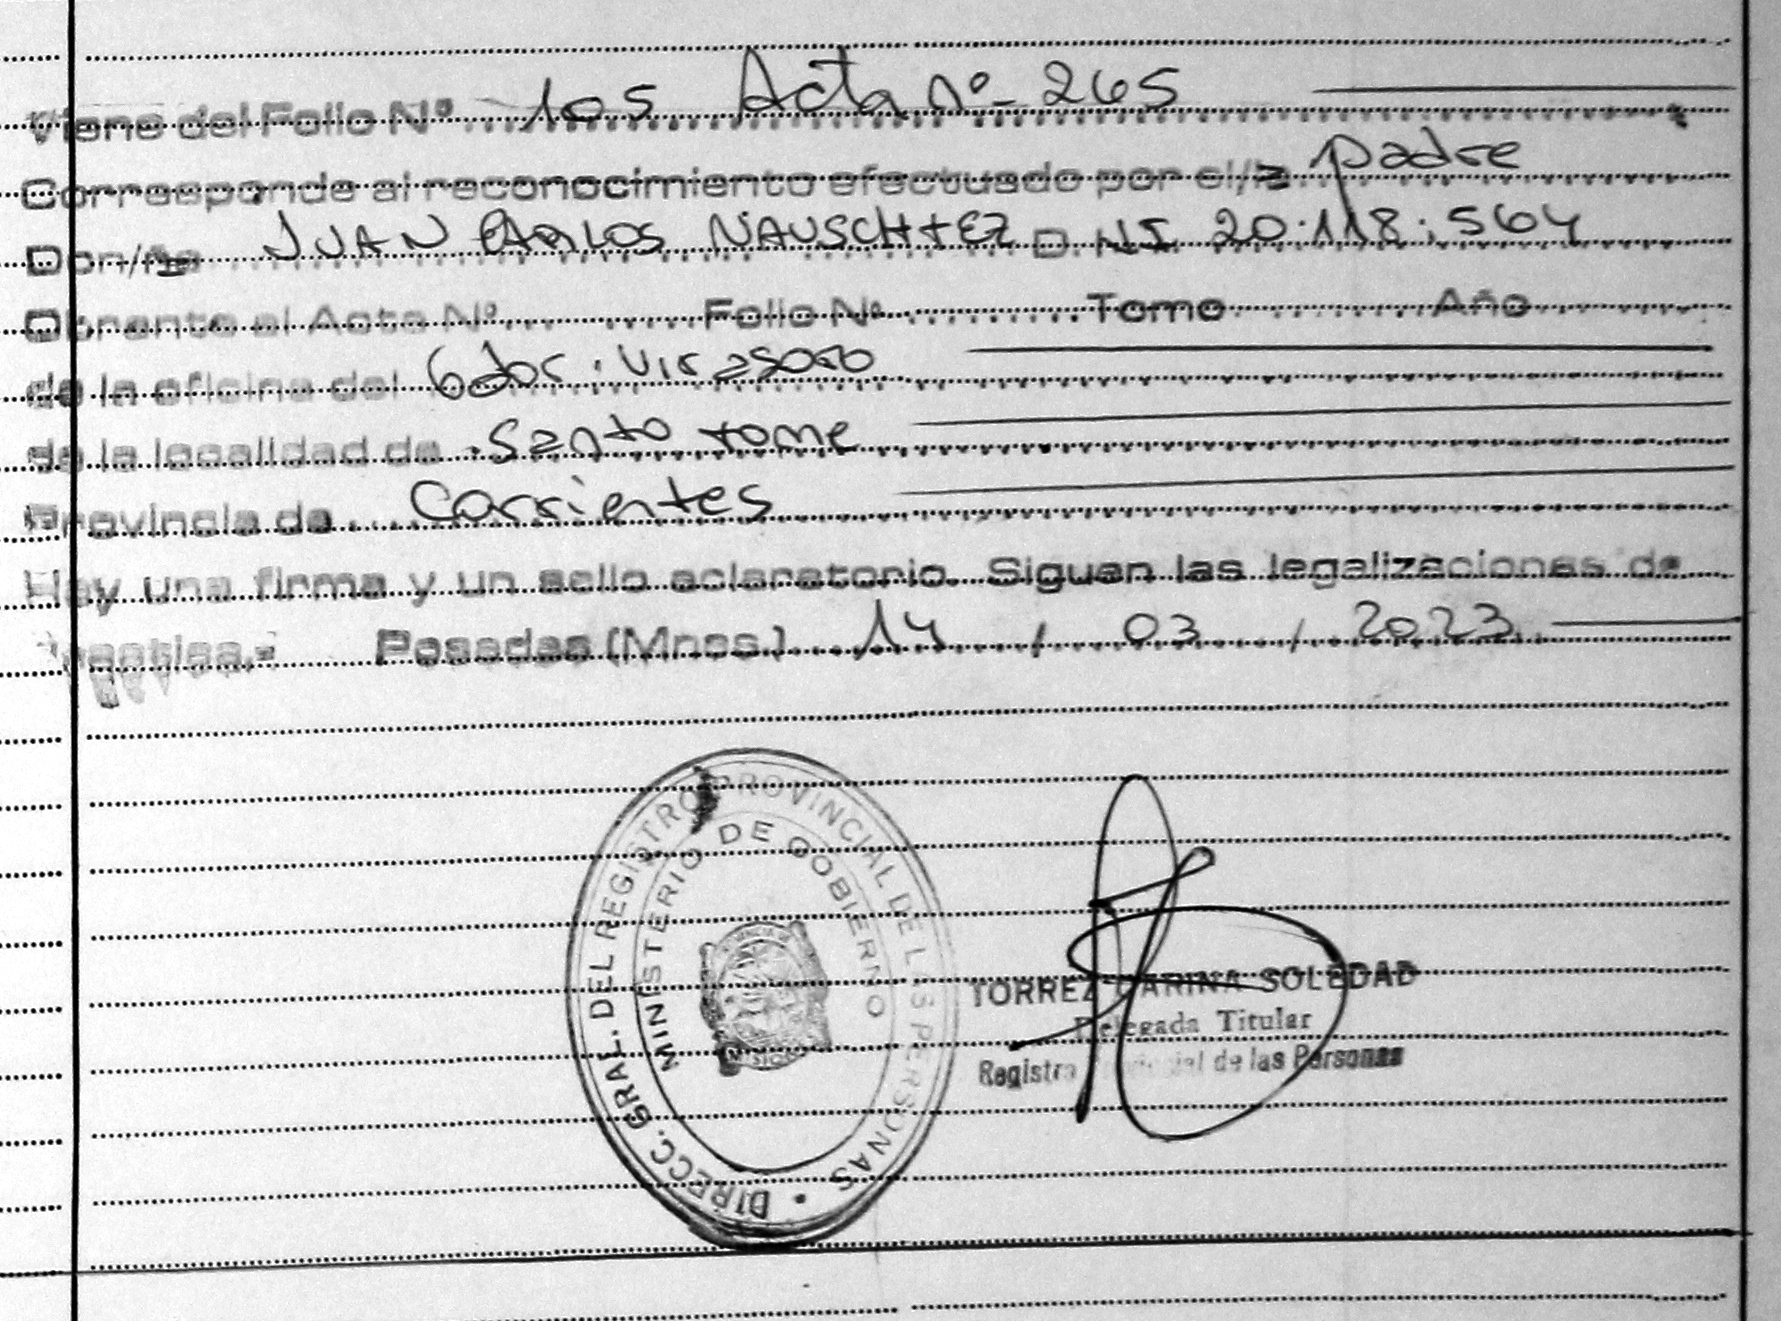 Viene del Folio Nº 105 Acta nº 265
Corresponde al reconocimiento efectuado por el/la padre
Don/ña JUAN CARLOS D.NI 20.118.564
Obrante al Acta Nº Folio Nº Tomo Año
de la oficina del Gdor. Virasoro
de la localidad de Santo tome
Provincia de Corrientes
Hay una firma y un sello aclaratorio. Siguen las legalizaciones de
Posadas (Mnes.) 14 / 03 / 2023
DIRECC. GRAL. DEL REGISTRO PROVINCIAL DE LAS PERSONAS
MINISTERIO DE GOBIERNO
TORREZ DARINA SOLEDAD
Delegada Titular
Registro Provincial de las Personas